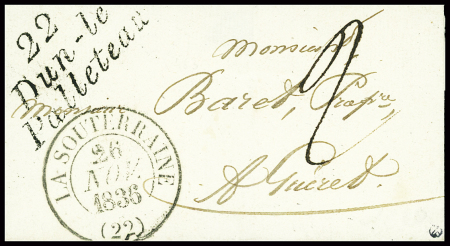 22
Dun-le
Palleteau
Monsieur
Monsieur
Baret,
A Guéret.
2
LA SOUTERRAINE
26
NOV.
1836
(22)